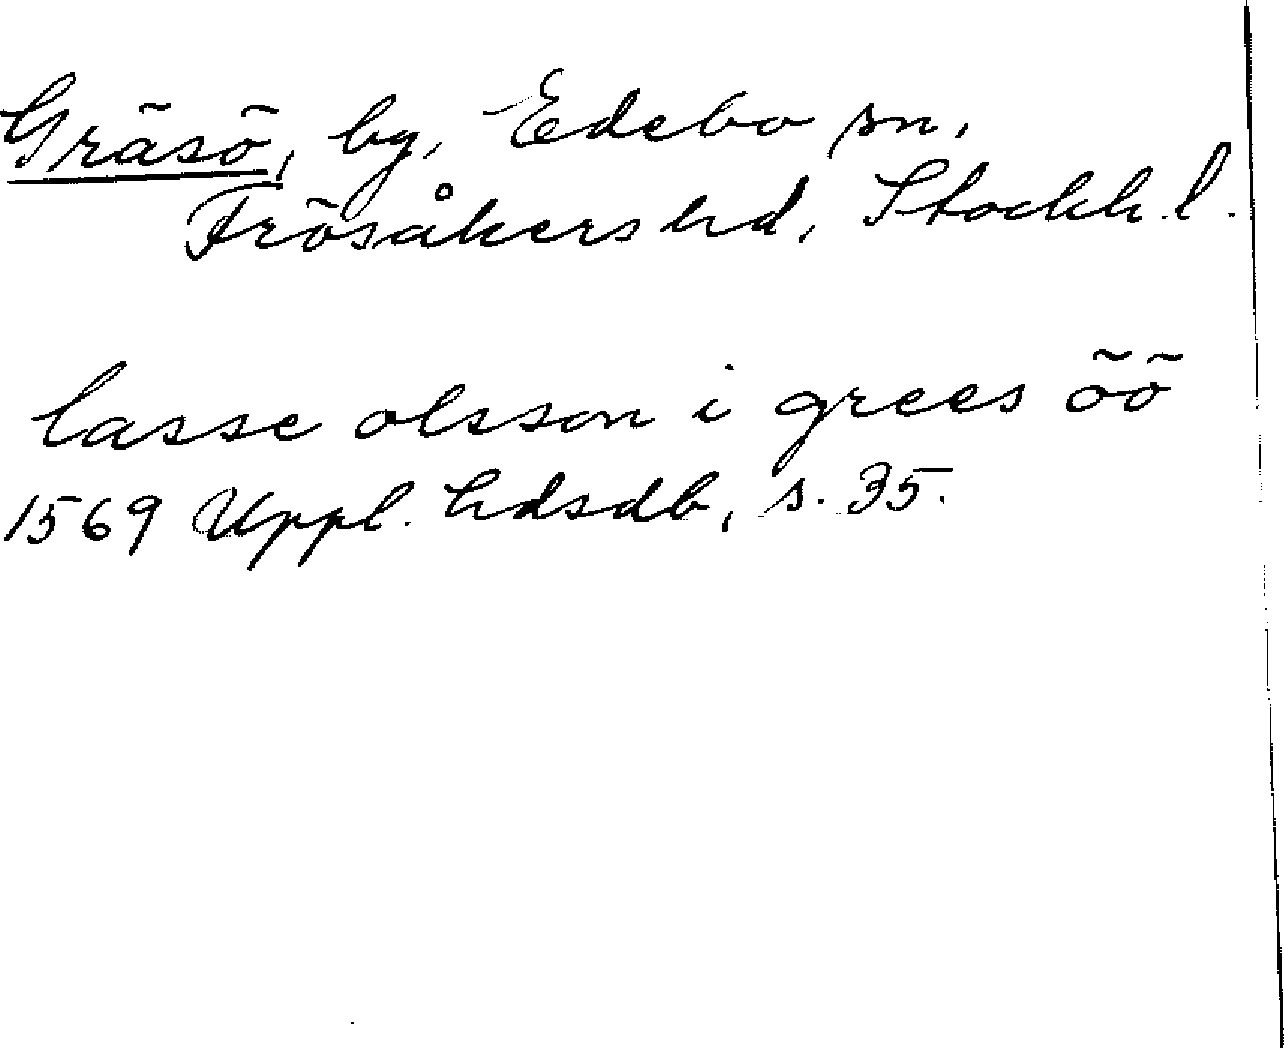 Gräsö, by, Edebo sn,
Frösåkers hd, Stockh. l.
lasse olsson i grees öö
1569 Uppl. hdsdb, s. 35.